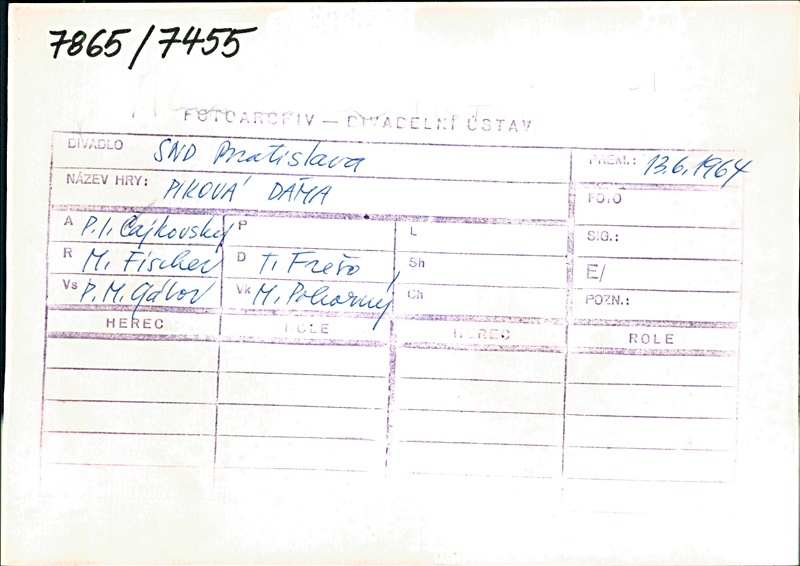 7865/7455
FOTOARCHIV — DIVADELNÍ ÚSTAV
DIVADLO SND Bratislava PREM.: 13.6.1964
NÁZEV HRY: PIKOVÁ DÁMA FOTO
A P.I. Čajkovský P L SIG.:
R M. Fischer D T. Frešo Sh E/
Vs P.M. Gábor Vk M. Pokorný Ch POZN.:
HEREC ROLE HEREC ROLE